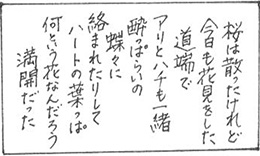 桜は散たけれど
今日も花見をした
道端で
アリとハチも一緒
酔っぱらいの
蝶々に
絡まれたりして
ハートの葉っぱ
何という花なんだろう
満開だった